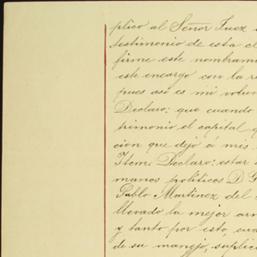 plico al Señor Juez
testimonio de esta
firme este nombram
este encargo con la
pues asi es mi volun
Declaro: que cuando
trimonio el capital q
cion que dejo á mis
Item: Declaro: estar
manos políticos D. G
Pablo Martinez del
llevado la mejor ar
y tanto por esto, cua
de su manejo, suplic